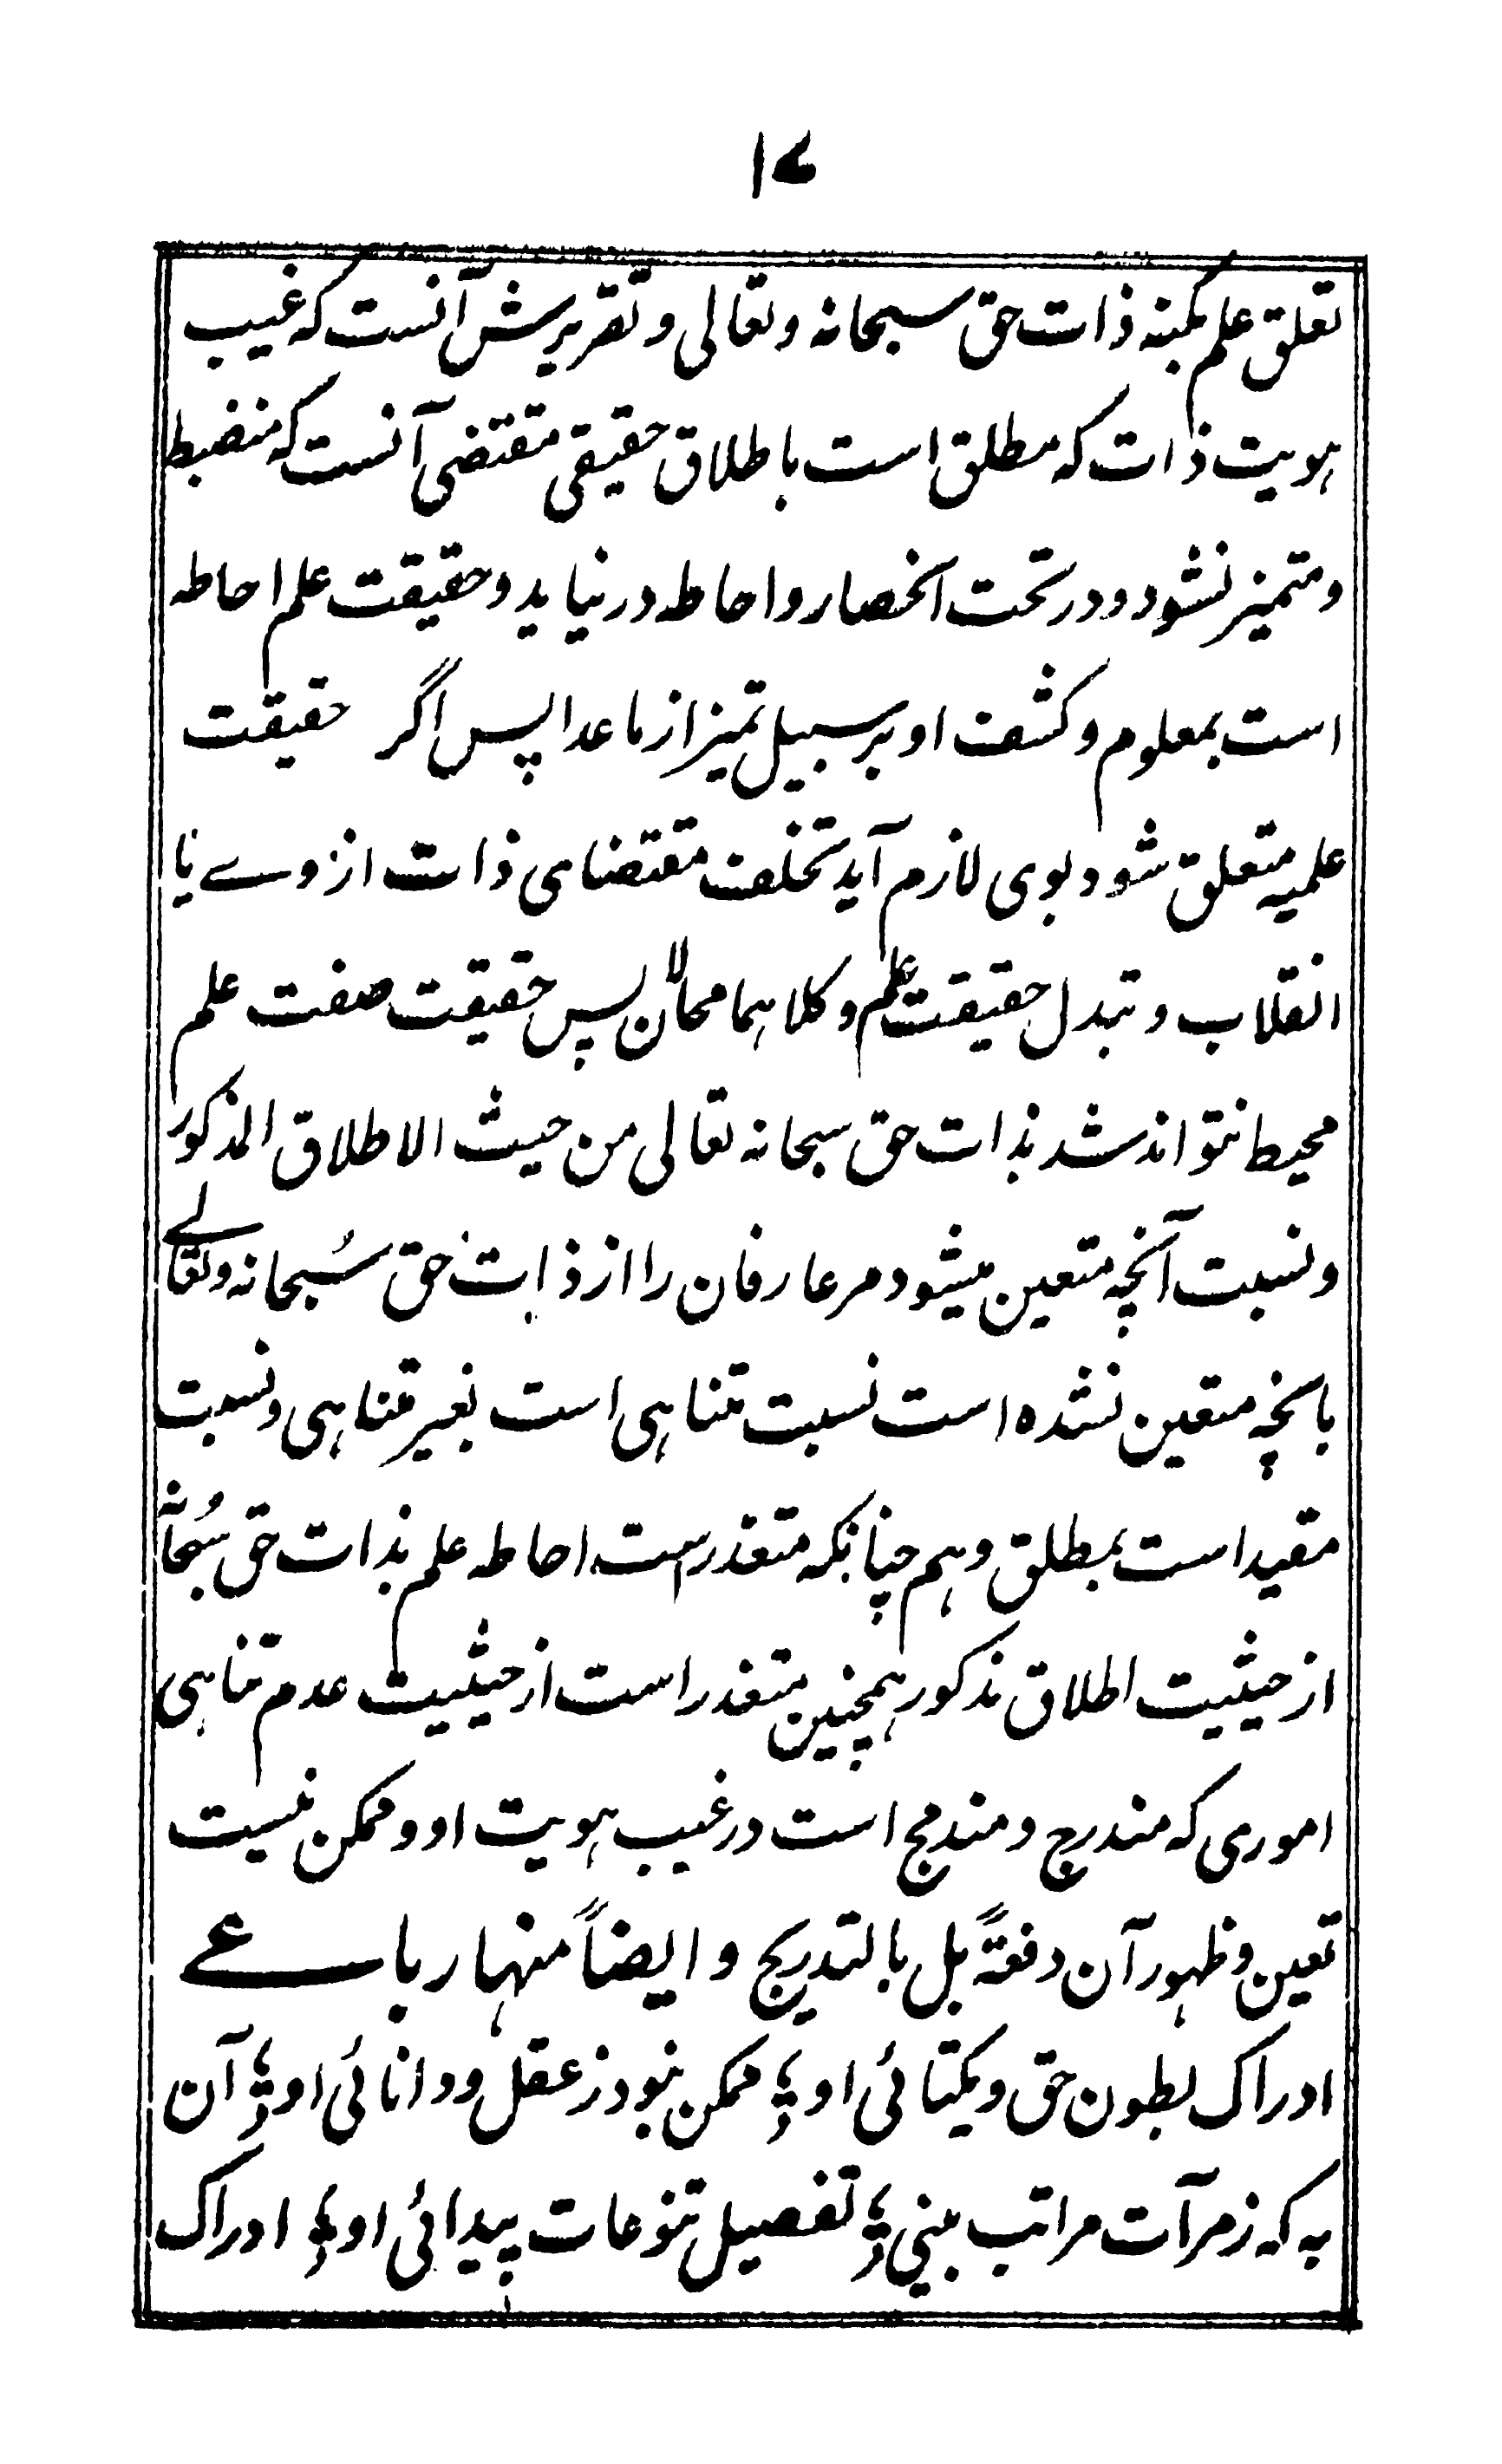 ۱۷
تعلق علم بکنه ذات حق سبحانه وتعالی وتقریرش آنست که غیب
هویت ذات که مطلق است باطلاق حقیقی مقتضی آنست که منضبط
ومتمیز نشود ودر تحت انحصار واحاطه در نیاید وحقیقت علم احاطه
است بمعلوم وکشف او بر سبیل تمیز از ماعدا پس اگر حقیقت
علمیه متعلق شود بوی لازم آید تخلف مقتضای ذات از وے یا
انقلاب وتبدل حقیقت علم وکلاهما محالان پس حقیقت صفت علم
محیط نتواند شد بذات حق سبحانه تعالی من حیث الاطلاق المذکور
ونسبت آنچه متعین میشود مر عارفان را از ذات حق سُبحانه وتعالے
بانچه متعین نشده است نسبت متناهی است بغیر متناهی ونسبت
مقید است بمطلق وهم چنانکه متعذر است احاطه علم بذات حق سُبحانه
از حیثیت اطلاق مذکور همچنین متعذر است از حیثیت عدم تناهی
اموری که مندرج ومندمج است در غیب هویت او وممکن نیست
تعین وظهور آن دفعةً بل بالتدریج وایضاً منها رباعے
ادراک بطون حق ویکتائی او ؛ ممکن نبود ز عقل ودانائی او ؛ آن
به که ز مرآت مراتب بینی ؛ تفصیل تنوعات پیدائی او ؛ ادراک